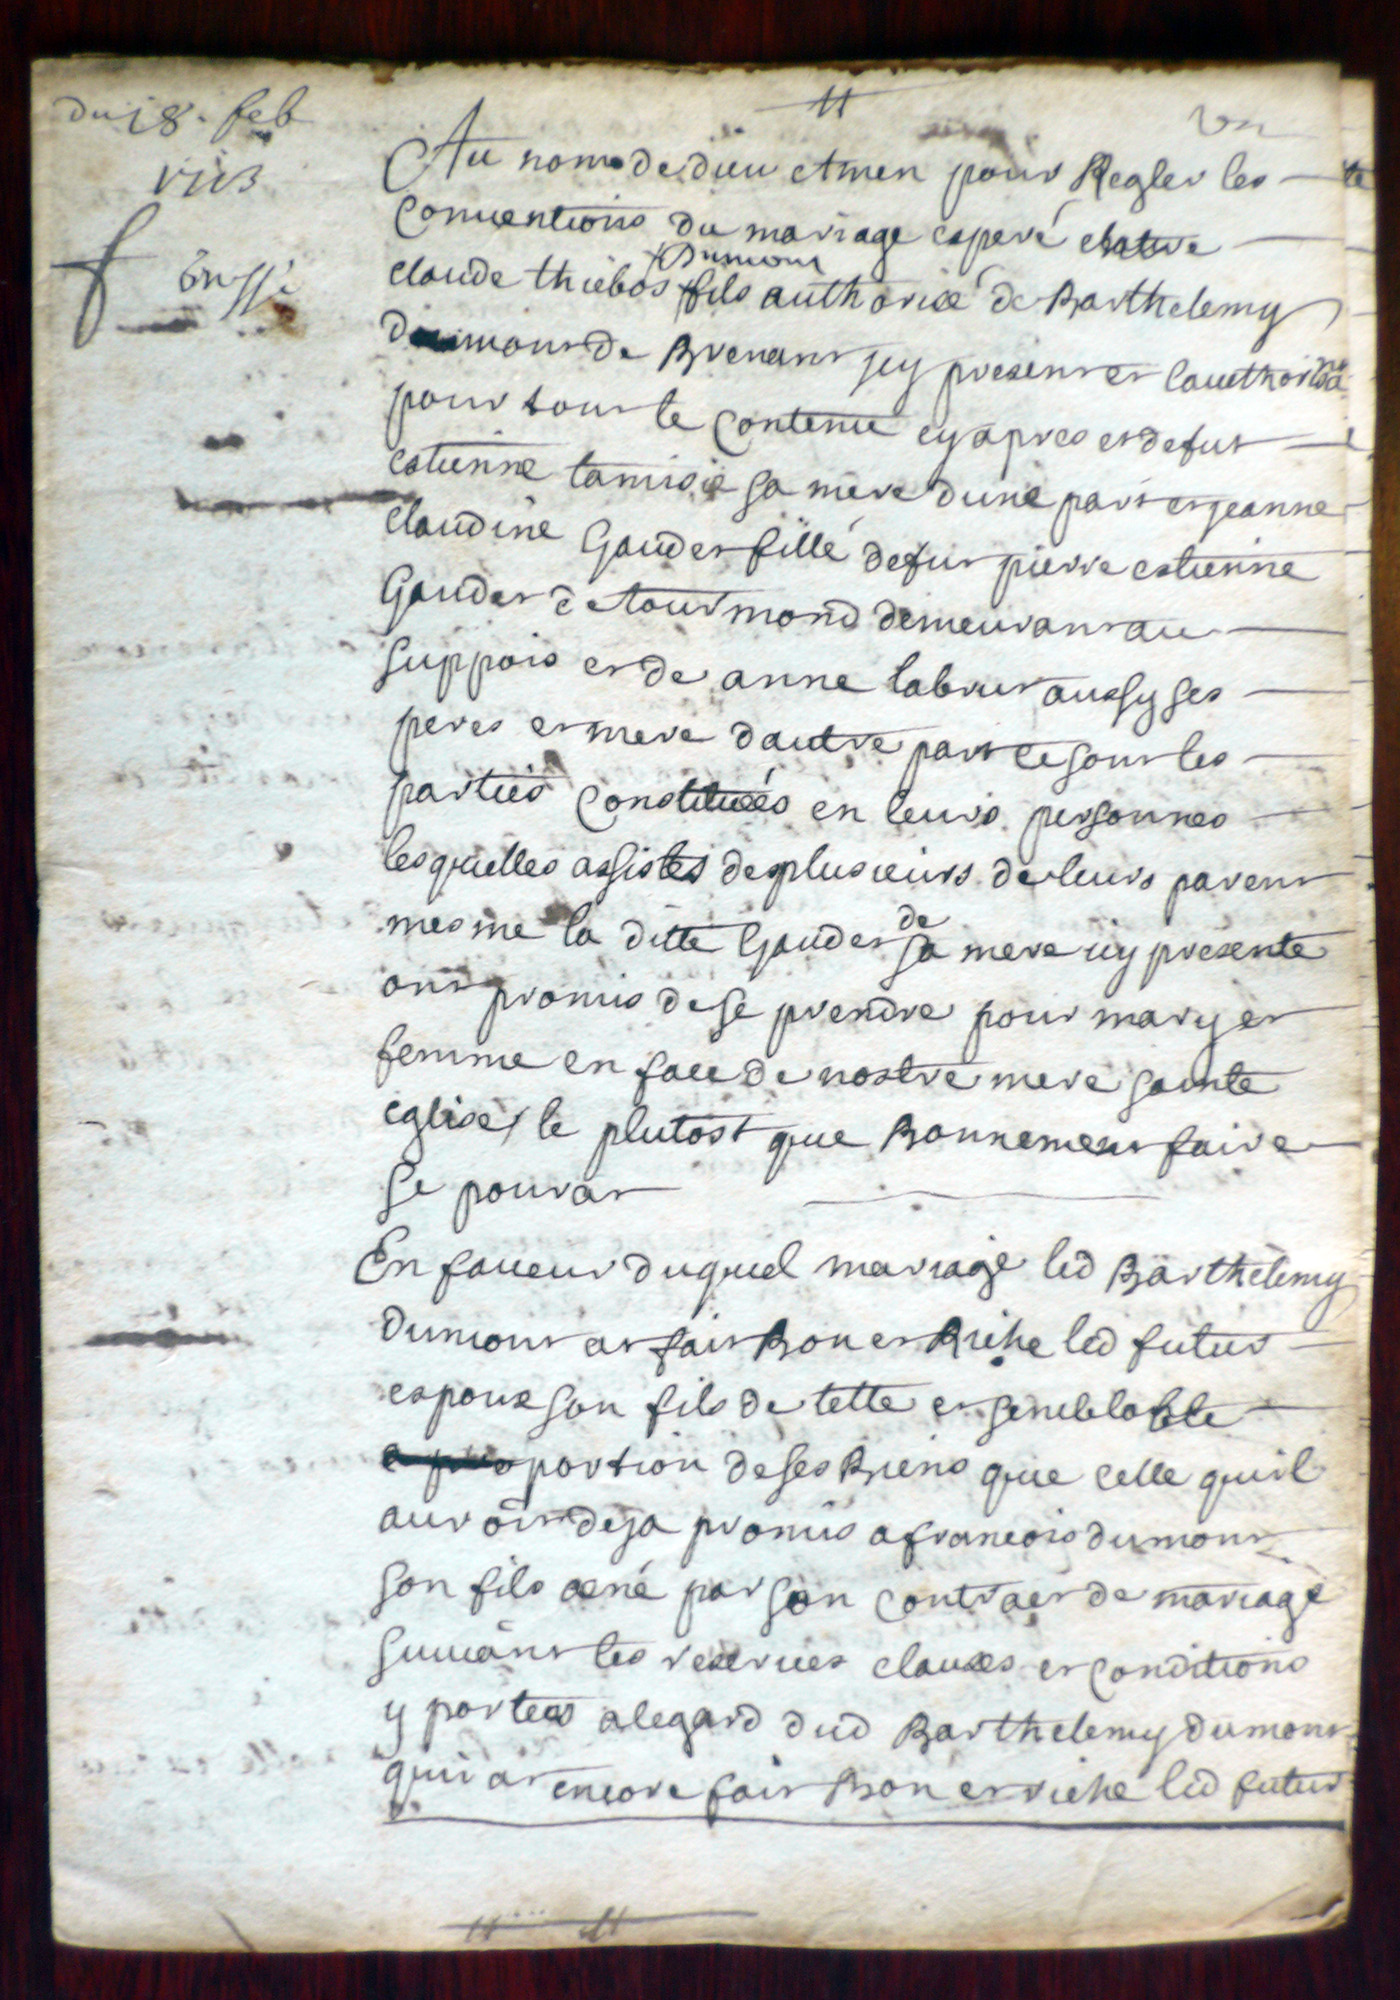 du 18. feb
Au nom de dieu Amen pour Regler les
Conuentions du mariage esperé entre
Dumont
claude thiebos fils authorisé de Barthelemy
dumont de Brenans icy present et lauthorisa
pour tout le Contenu cy apres et de fut
estienne tamisie sa mere dune part et jeanne
claudine Gaudet fille de fut pierre estienne
Gaudet de tourmond demeurant au
suppois et de anne labrut aussy ses
peres et mere dautre part ce sont les
parties Constituées en leurs personnes
lesquelles assistes de plusieurs de leurs parent
de
mesme la ditte Gaudet sa mere icy presente
ont promis de se prendre pour mary et
femme en face de nostre mere sainte
eglise le plutost que Bonnement faire
se pourat
En faueur duquel mariage led Barthelemy
dumont at fait Bon et Riche led futur
espoux son fils de telle et semblable
portion de ses Biens que celle quil
auroit deja promis a francois dumont
son fils aené par son contract de mariage
suiuant les reserues clauses et conditions
y portees alegard dud Barthelemy dumont
qui at encore fait Bon et riche led futur